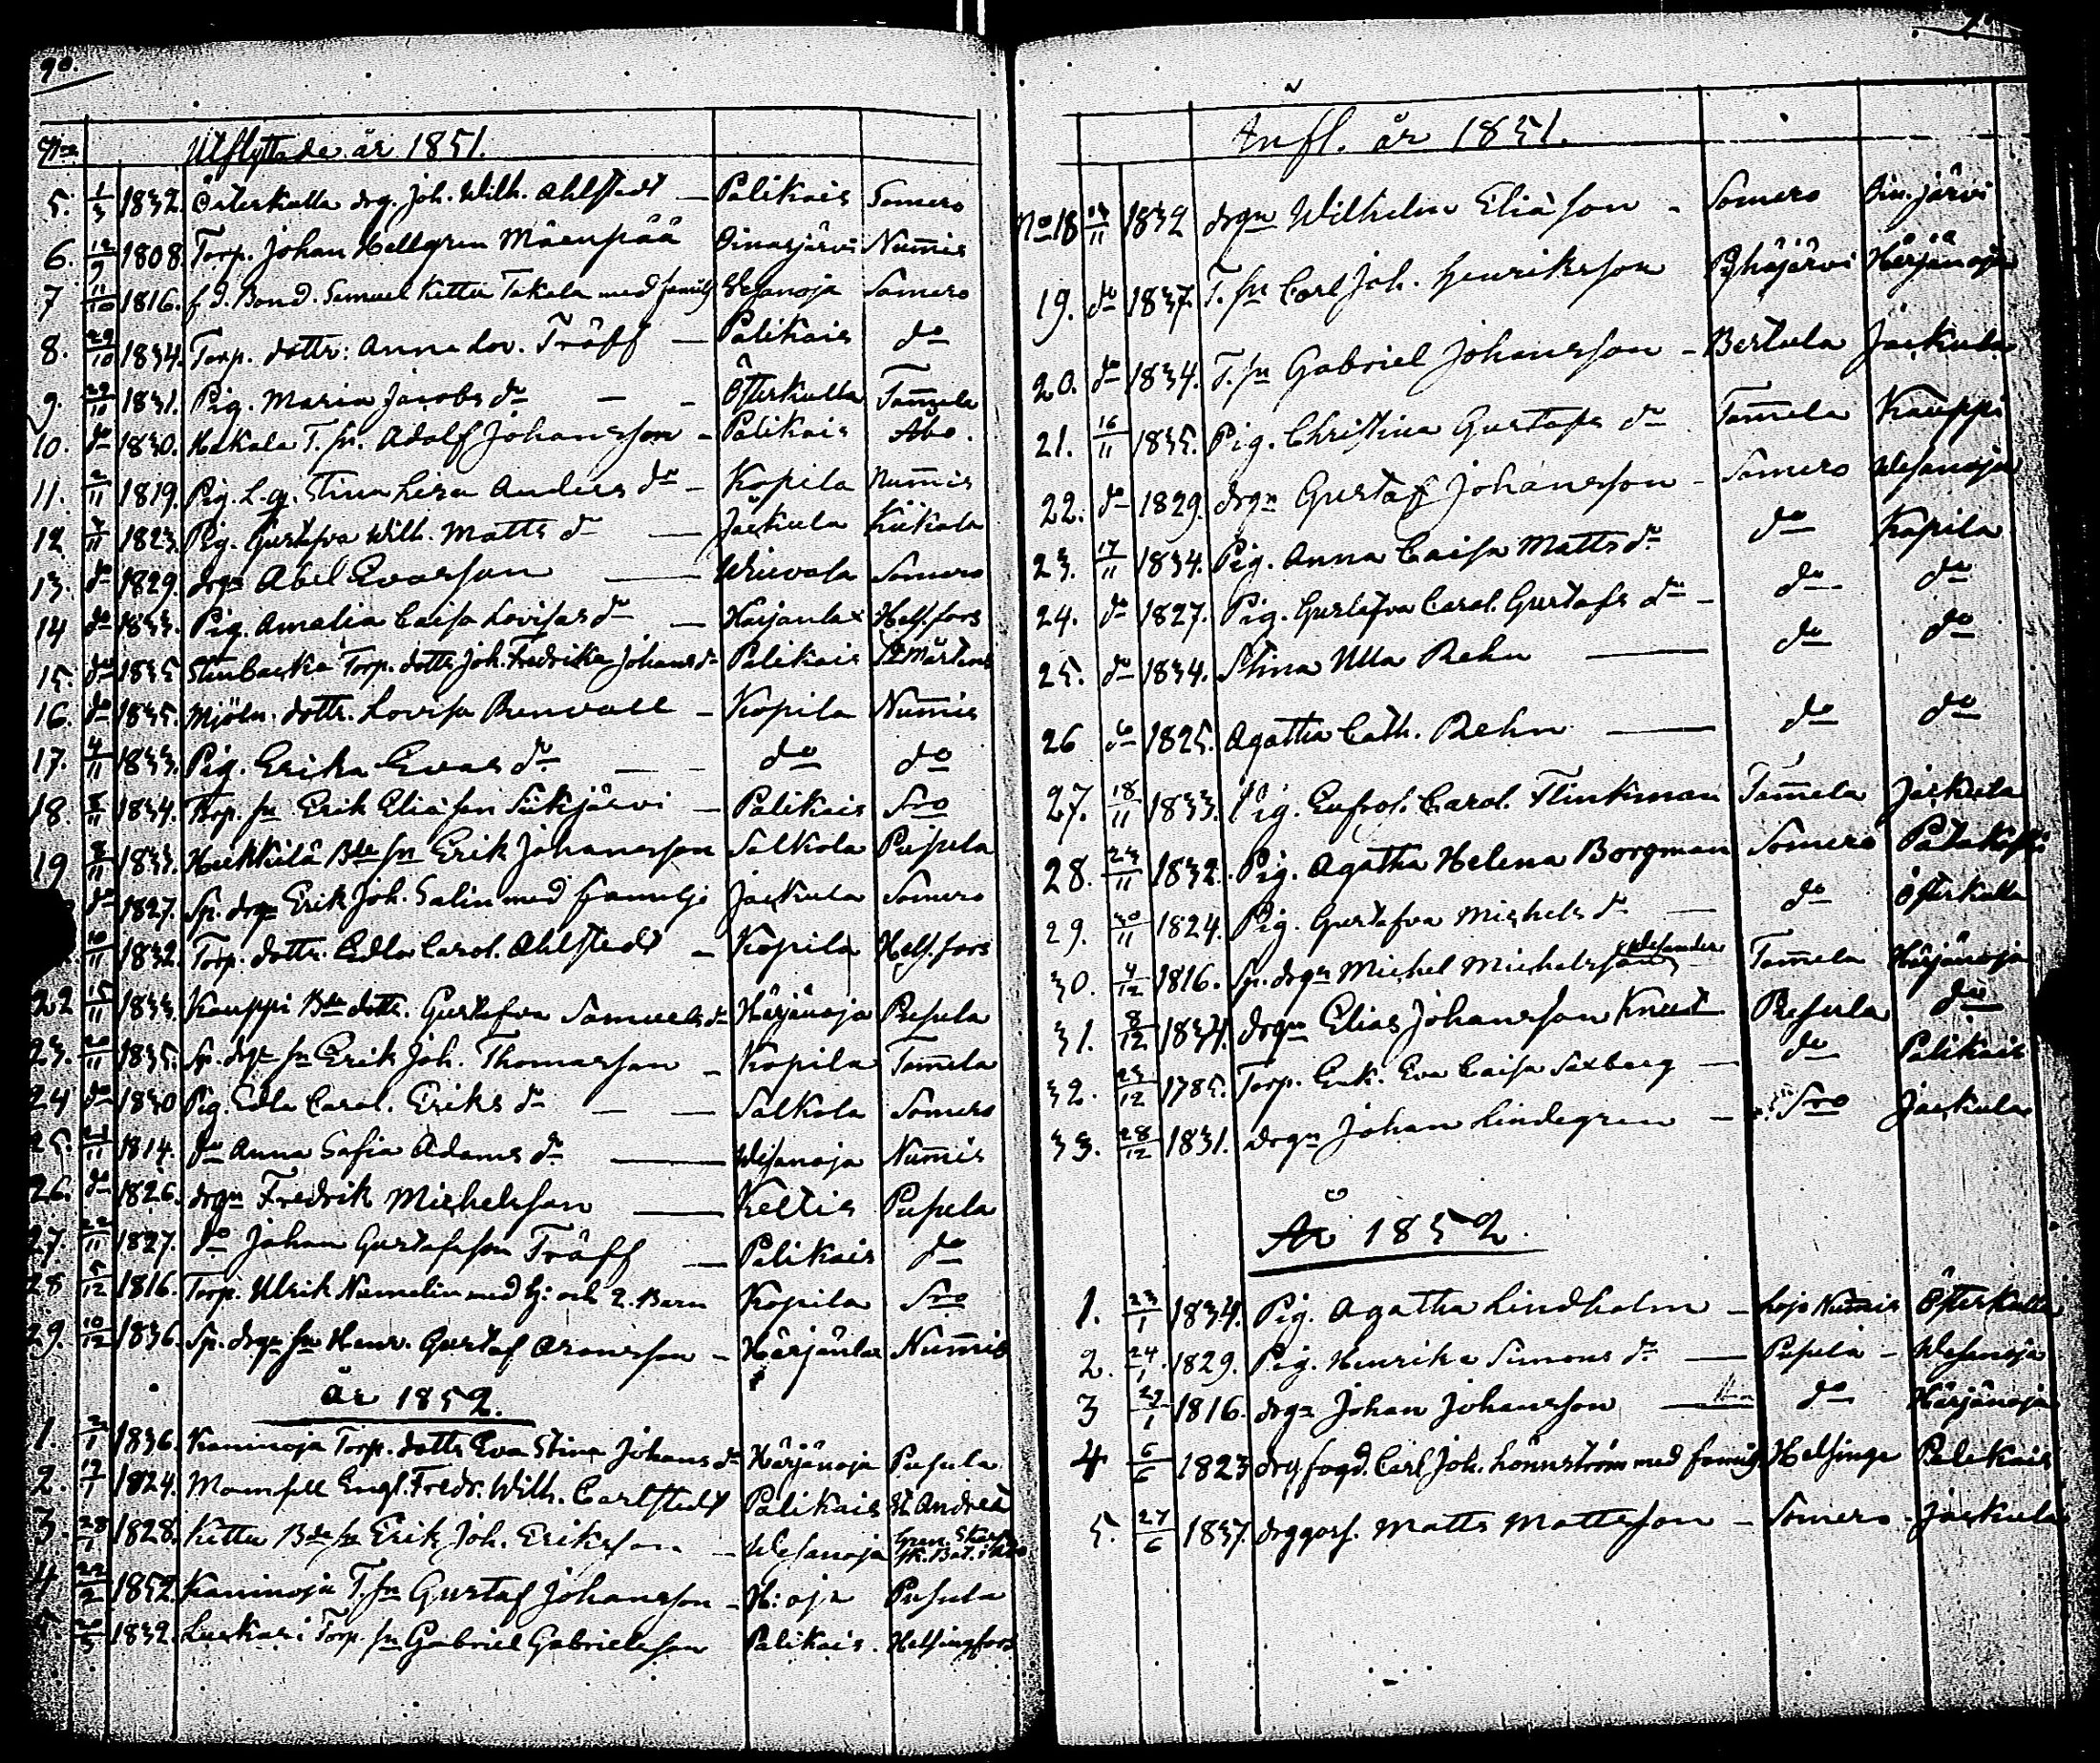 90.
Utflyttade år 1851.
5. 1/3 1832. Österkulla drg. Joh. Wilh. Ahlstedt — Palikais Somero
6. 12/9 1808. Torp. Johan Hellgren Mäenpää Oinasjärvi Num̄is
7 11/10 1816. f.d. Bond. Samuel Kettu Takala med familj Wesanoja Somero
8. 29/10 1834. Torp. dottr: Anna Lov. Träff — Palikais do
9. 29/10 1831. Pig. Maria Jacobs dr — - Österkulla Tam̄ela
10. do 1830. Hakala T. sn. Adolf Johansson - Palikais Åbo.
11. 2/11 1819. Pig. L. g. Stina Lisa Anders dr - Kopila Num̄is
12 7/11 1823. Pig. Gustafva Wilh. Matts dr — Jäckula Kiikala
13. do 1829. drgn Abel Evasson — Wiuvala Somero
14 do 1833. Pig. Amalia Caisa Lovisas dr — Härjänlax Hels.fors
15. do 1835 Stenbacka Torp. dottr Joh. Fredrika Johans dr Palikais St Mårtens
16. do 1835. Mjöln. dottr. Lovisa Renvall - Kopila Num̄is
17. 4/11 1833. Pig. Erika Evas dr — - do do
18. 8/11 1834. Torp. sn Erik Eliasson Siikjärvi - Palikais Sro
19 8/11 1833. Heikkilä Bde sn Erik Johansson Salkola Pusula
do 1827. Sp. drgn Erik Joh. Salin med familje Jäckula Somero
10/11 1832. Torp. dottr. Edla Carol. Ahlstedt - Kopila Hels.fors
22 15/11 1833. Kauppi Bde dottr. Gustafva Samuels dr Härjänoja Pusula
23. 20/11 1835. Sp. drgn sn Erik Joh. Thomasson - Kopila Tam̄ela
24 do 1830 Pig. Edla Carol. Eriks dr — — Salkola Somero
25. 21/11 1814. do Anna Sofia Adams dr — Wesanoja Num̄is
26. do 1826. drgn Fredrik Michelsson — Keltis Pusula
27. 22/11 1827. do Johan Gustafsson Träff — Palikais do
28 5/12 1816. Torp. Ulrik Numelin med h: och 2. Barn Kopila Sro
29. 10/12 1836. Sp. drgn sn Henr. Gustaf Aronsson - Härjänlax Num̄is
år 1852.
1. 1836. Kaninoja Torp. dottr Eva Stina Johans dr Härjänoja Pusula
2. 17/1 1824. Mamsell Engl. Fredr. Wilh. Carlstedt Palikais St Andreæ
3. 28/1 1828. Kettu Bde sn Erik Joh. Eriksson - Wesanoja
4 22/2 1852. Kaninoja T. sn Gustaf Johansson - H:oja Pusula
1832. Luskari Torp. sn Gabriel Gabrielsson Palikais. Helsingfors
Infl. år 1851.
No 18 /11 1832 drgn Wilhelm Eliasson - Somero Oin.järvi
19. do 1837. T. sn Carl Joh. Henriksson Pyhäjärvi Härjänoja
20. do 1834. T. sn Gabriel Johansson - Bertula Jäckula
21. 16/11 1835. Pig. Christina Gustafs dr Tam̄ela Kauppi
22. do 1829. drgn Gustaf Johansson - Somero Wesanoja
23. 17/11 1834. Pig. Anna Caisa Matts dr do Kopila
24. do 1827. Pig. Gustafva Carol. Gustafs dr - do do
25. do 1834. Stina Ulla Rehn — do do
26 do 1825. Agatha Cath. Rehn — do do
27. 18/11 1833. Pig. Eufros. Carol. Flinkman Tam̄ela Jäckula
28. 23/11 1832. Pig. Agatha Helena Borgman Somero Patakoski
29. 30/11 1824. Pig. Gustafva Michels dr — do Österkulla
30. 4/12 1816. Sp. drgn Michel Michelsson Tam̄ela Härjänoja
31. 8/12 1834. drgn Elias Johansson Knut Pusula do
32. 23/12 1785. Torp. Enk. Eva Caisa Saxberg — do Palikais
33. 28/12 1831. drgn Johan Lindegren — Sro Jäckula
År 1852.
1. 23/1 1834. Pig. Agatha Lindholm — Lojo Num̄is Österkulla
2. 24/1 1829. Pig. Henrika Simons dr — Pusula - Wesanoja
3 27/1 1816. drgn Johan Johansson — do Härjänoja
4 6/6 1823 drg fogd. Carl Joh. Lönnström med familj. Helsinge Palikais
5. 27/6 1837. drggoss. Matts Mattsson - Somero - Jäckula